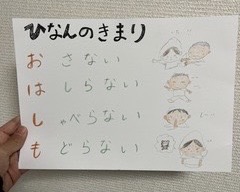 ひなんのきまり
おさない
はしらない
しゃべらない
もどらない